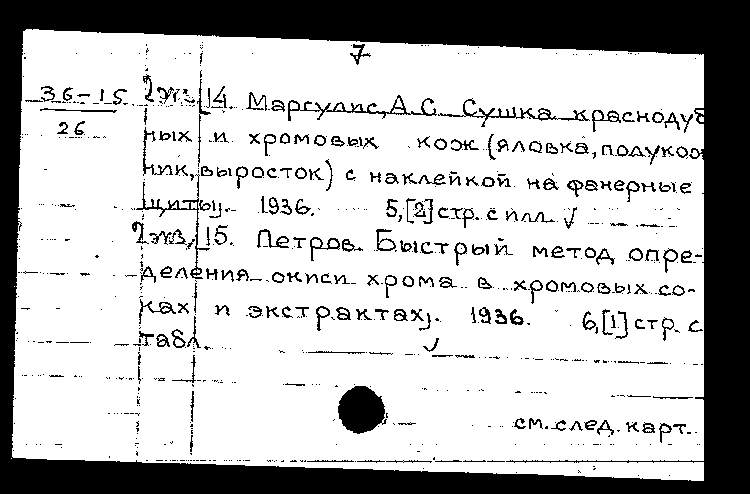 7
36-15 2экз. 14. Маргулис, А.С. Сушка краснодуб
26
ных и хромовых кож (яловка, полукож
ник, выросток) с наклейкой на фанерные
щиты. 1936. 5,[2] стр. с илл. √
2экз. 15. Петров. Быстрый метод опре-
деления окиси хрома в хромовых со-
ках и экстрактах. 1936. 6,[1] стр. с
табл. √
см. след. карт.